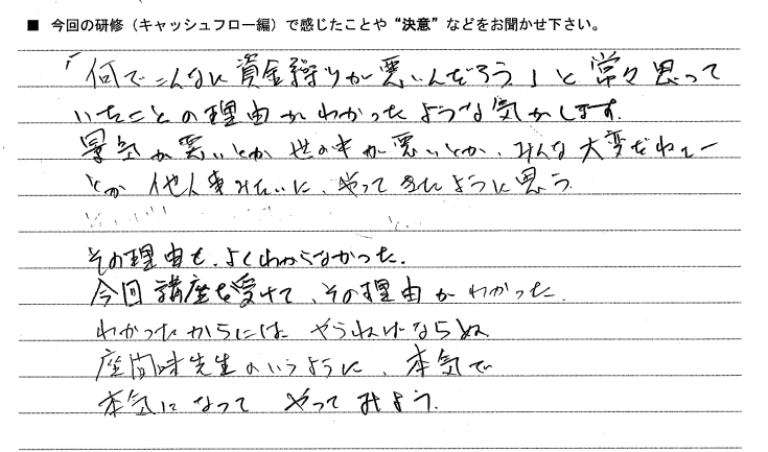 ■ 今回の研修（キャッシュフロー編）で感じたことや“決意”などをお聞かせ下さい。
「何でこんなに資金繰りが悪いんだろう」と常々思って
いたことの理由がわかったような気がします。
景気が悪いとか世の中が悪いとか、みんな大変だねぇー
とか他人事みたいに、やってきたように思う
その理由も、よくわからなかった。
今回講座を受けて、その理由がわかった。
わかったからには やらねばならぬ
座間味先生のいうように、本気で
本気になって やってみよう。